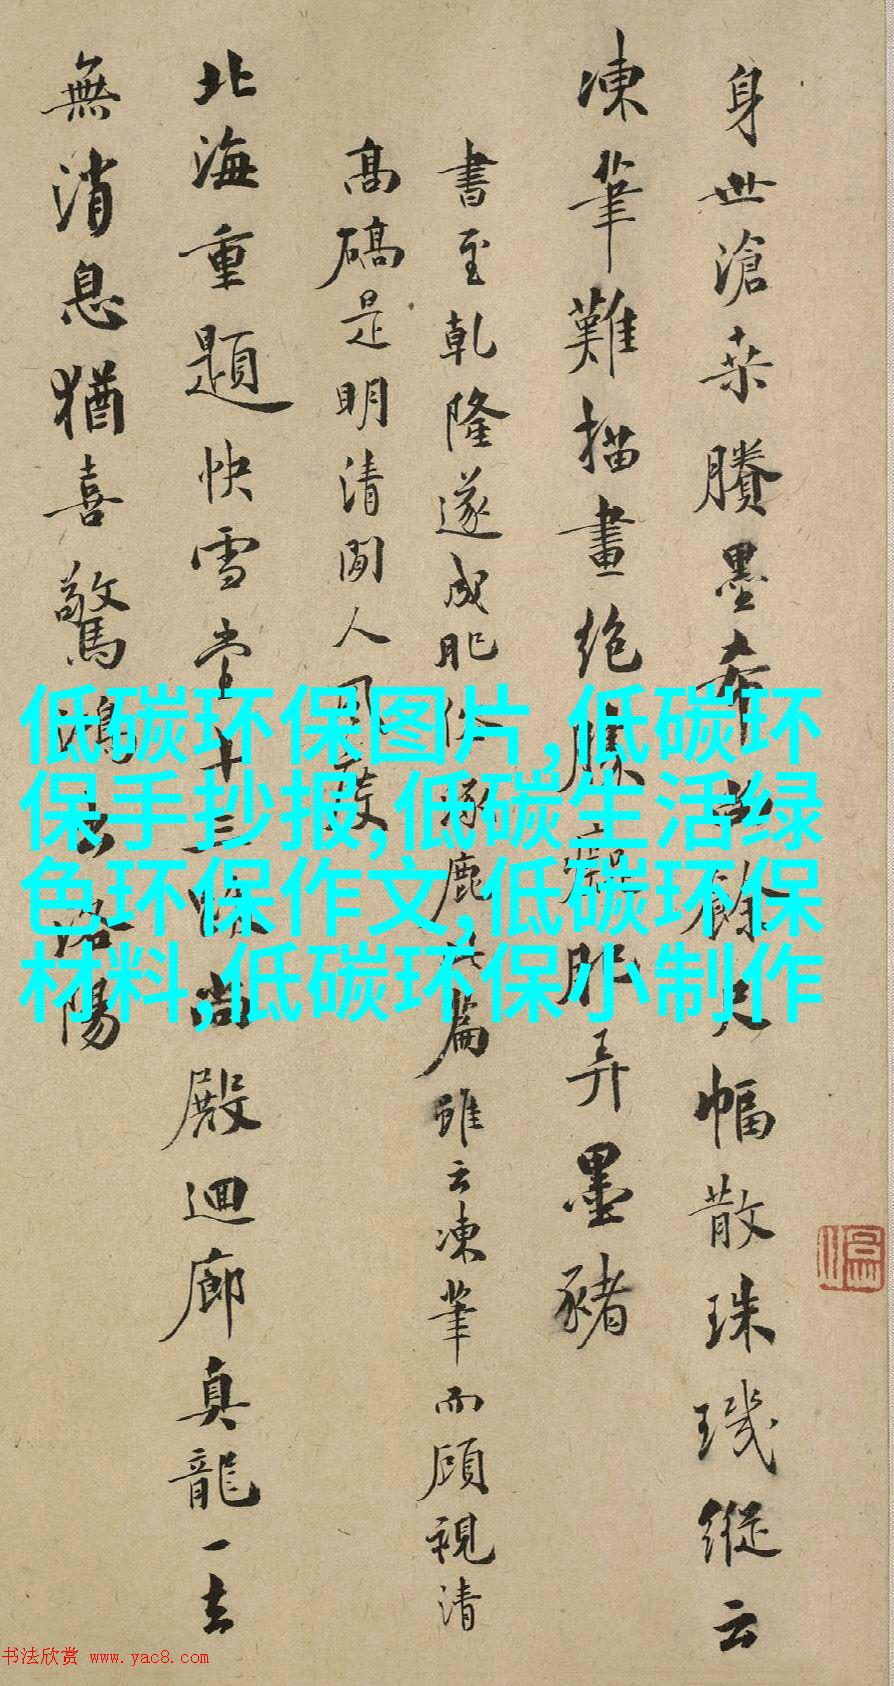 身世滄桑賸墨希餘尺幅散珠璣縱云
凍筆難描畫絕勝癡肥弄墨豬
書至乾隆遂成肥鹿篇雖云凍筆而顧視清
高礄是明清閒人風
北海重題快雪堂十三尚殿迴廊真龍一去
無消息猶喜驚鴻洛陽
低碳环保图片,低碳环
保手抄报,低碳生活绿
色环保作文,低碳环保
材料,低碳环保小制作
书法欣赏 www.yac8.com